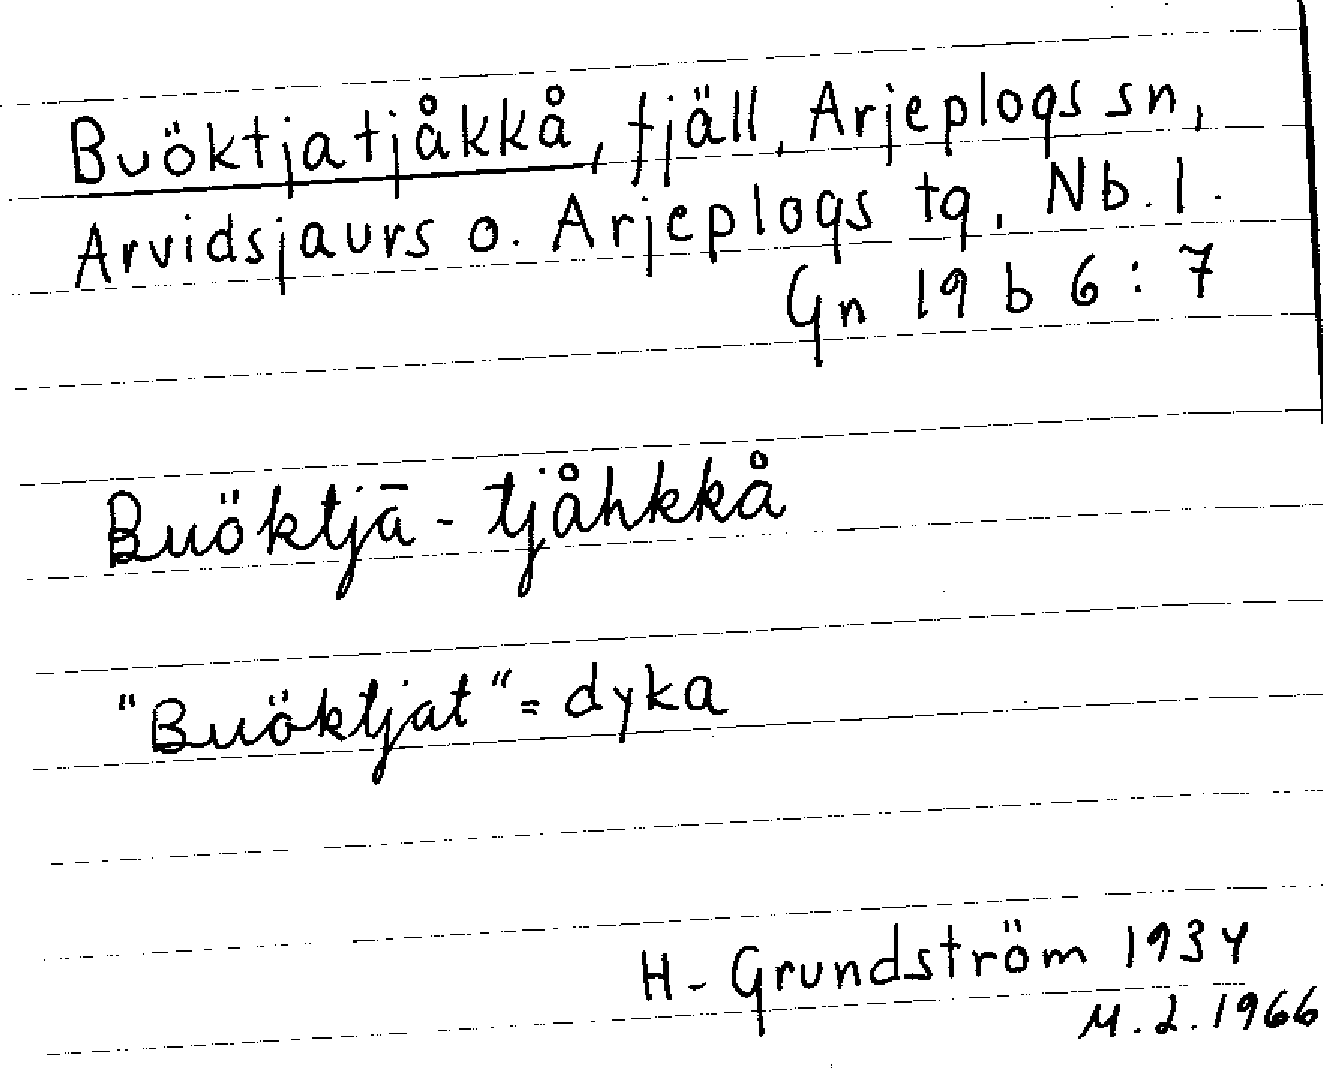 Buöktjatjåkkå, fjäll, Arjeplogs sn,
Arvidsjaurs o. Arjeplogs tg, Nb. l.
Gn 19 b 6:7
Buöktjā - tjåhkkå
"Buöktjat" = dyka
H. Grundström 1934
M.L.1966